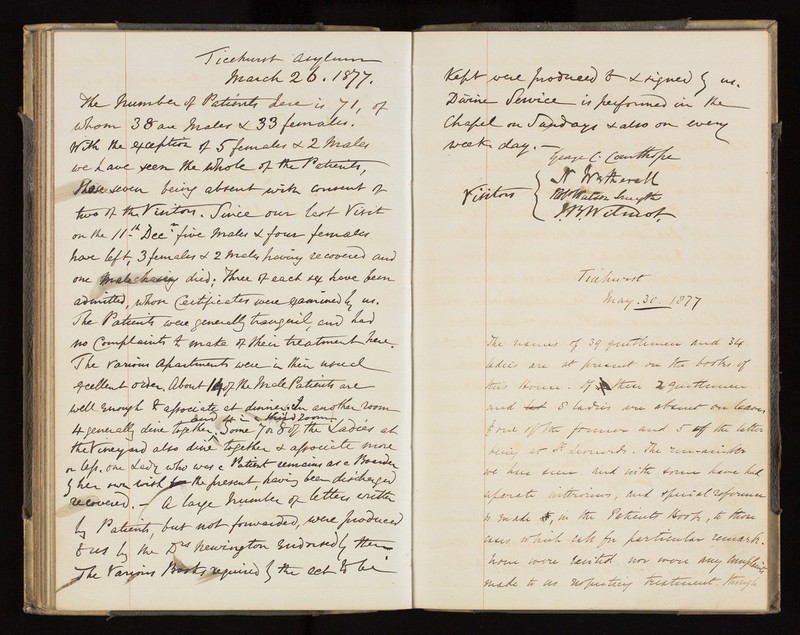 Ticehurst Asylum
March 26. 1877.
The Number of Patients here is 71, of
whom 38 are Males & 33 females.
With the exception of 5 females & 2 Males
we have seen the whole of the Patients,
these seven being absent with consent of
two of the Visitors. Since our last Visit
on the 11th Decr five Males & four females
have left, 3 females & 2 Males having recovered and
one Male having died; Three of each sex have been
admitted, whose Certificates were examined by us.
The Patients were generally tranquil, and had
no Complaints to make of their treatment here.
The various Apartments were in their usual
excellent order. About 14 of the Male Patients are
well enough to associate at dinner. In another room
4 generally dine together, and 4 in a third room. Some 7 or 8 of the Ladies at
the Vineyard also dine together & associate more
or less, one Lady who was a Patient remains as a Boarder
by her own wish for the present, having been discharged
recovered. — A large Number of letters written
by Patients, but not forwarded, were produced
to us by the Drs Newington Endorsed by them
The Various Books required by the Act to be
kept were produced to & signed by us.
Divine Service is performed in the
Chapel on Sundays & also on every
week day. —
George C. Courthope
Wetherall
Visitors
Watson Smyth
Wilmot
Ticehurst
May. 30. 1877
The names of 39 gentlemen and 34
ladies are at present on the books of
this House. Of these 2 gentlemen
and 8 ladies are absent on leave,
one of the former and 5 of the latter
being at St Leonards. The remainder
we have seen, and with some have had
separate interviews, and special reference
is made, in the Patients Book, to those
cases which call for particular remark.
None were excited, nor were any complaints
made to us respecting treatment, though